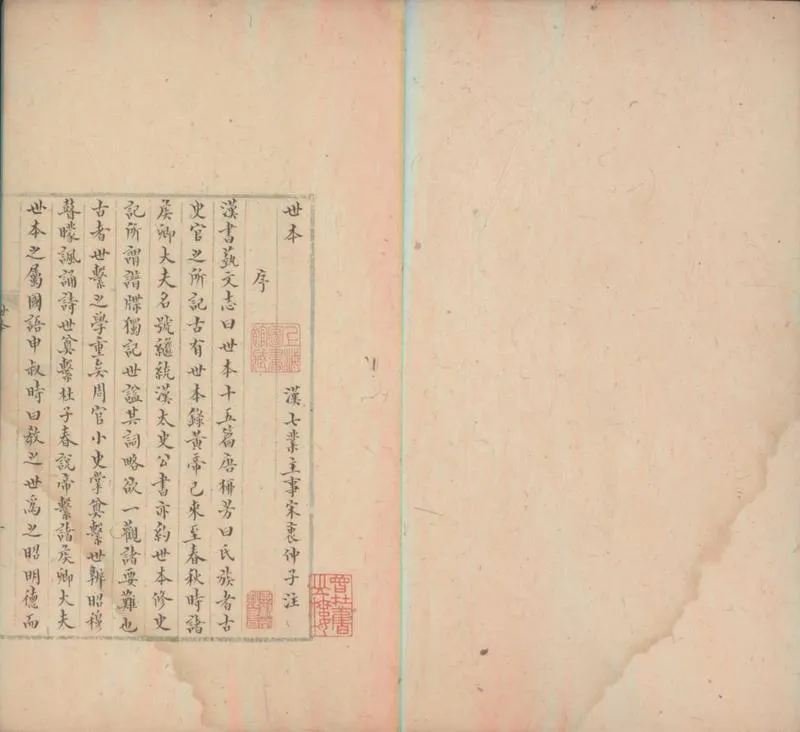 世本　漢七業主事宋衷仲子注
序
漢書藝文志曰世本十五篇唐栁芳曰氏族者古
史官之所記古有世本錄黃帝已來至春秋時諸
矦卿大夫名號繼統漢太史公書亦約世本修史
記所謂譜牒獨記世謚其詞略欲一觀諸要難也
古者世繫之學重矣周官小史掌奠繫世辨昭穆
瞽矇諷誦詩世奠繫杜子春說帝繫諸矦卿大夫
世本之屬國語申叔時曰敎之世爲之昭明德而
世本